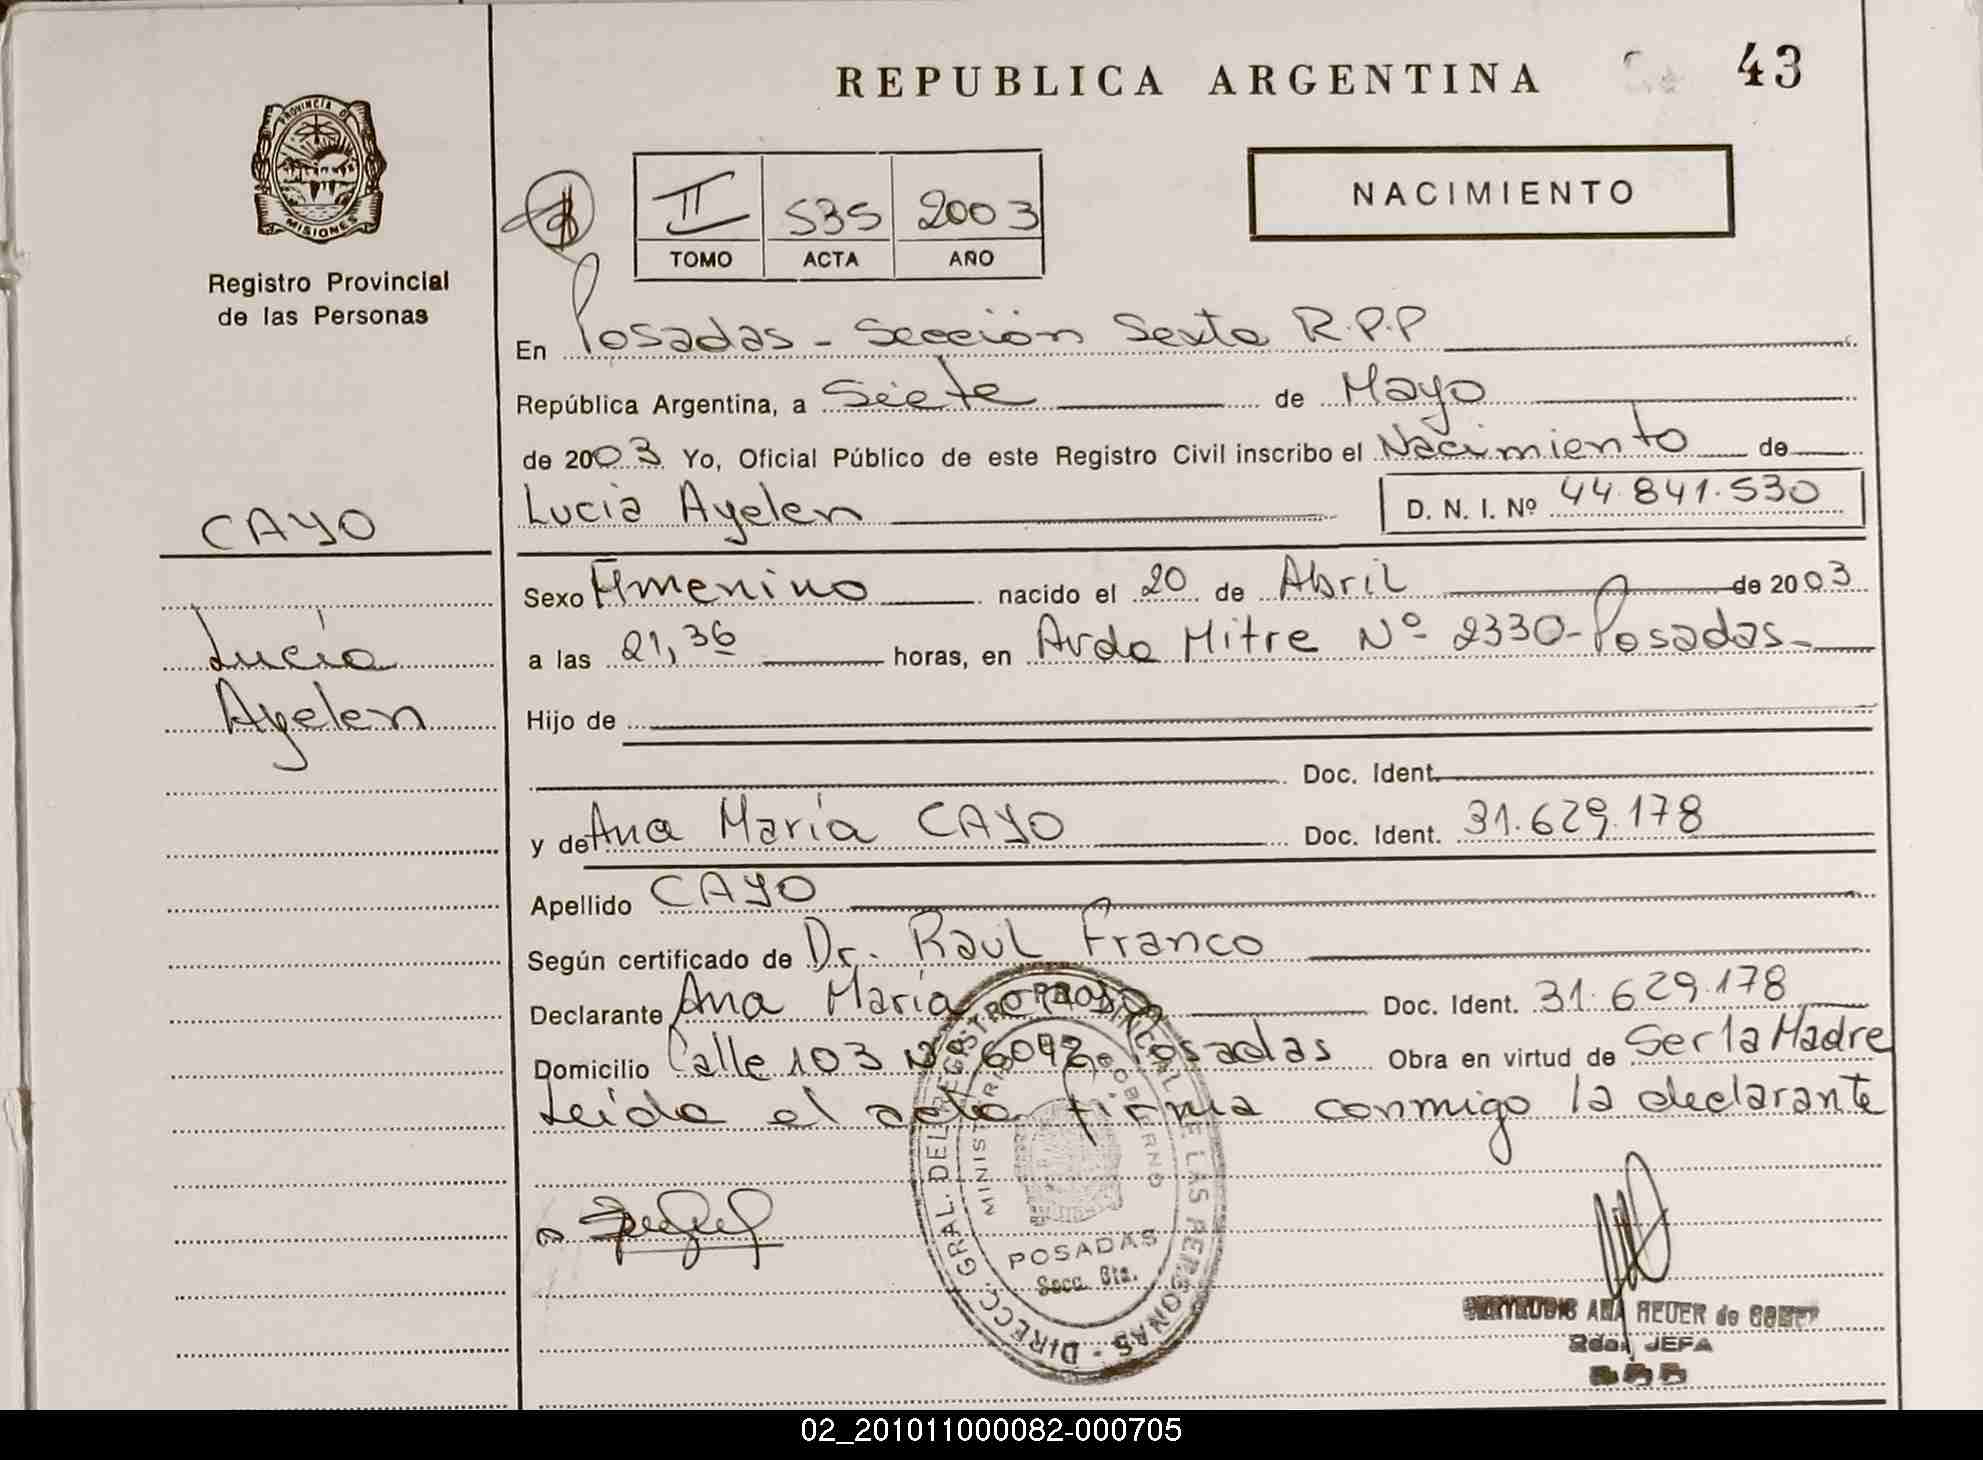 REPUBLICA ARGENTINA
43
PROVINCIA DE
MISIONES
Registro Provincial
de las Personas
II 535 2003
TOMO ACTA AÑO
NACIMIENTO
En Posadas - Sección Sexta R.P.P
República Argentina, a Siete de Mayo
de 2003 Yo, Oficial Público de este Registro Civil inscribo el Nacimiento de
Lucia Ayelen D. N. I. Nº 44.841.530
CAYO
Lucía
Ayelen
Sexo Femenino nacido el 20 de Abril de 2003
a las 21,36 horas, en Avda Mitre Nº 2330-Posadas-
Hijo de
Doc. Ident.
y de Ana María CAYO Doc. Ident. 31.629.178
Apellido CAYO
Según certificado de Dr. Raul Franco
Declarante Ana María CAYO Doc. Ident. 31.629.178
Domicilio Calle 103 Nº 6092-Posadas Obra en virtud de Ser la Madre
Leida el acta firma conmigo la declarante
DIRECC. GRAL. DEL REGISTRO PROVINCIAL DE LAS PERSONAS -
MINISTERIO GOBIERNO
POSADAS
Secc. 6ta.
ANA REUER de
JEFA
02_201011000082-000705